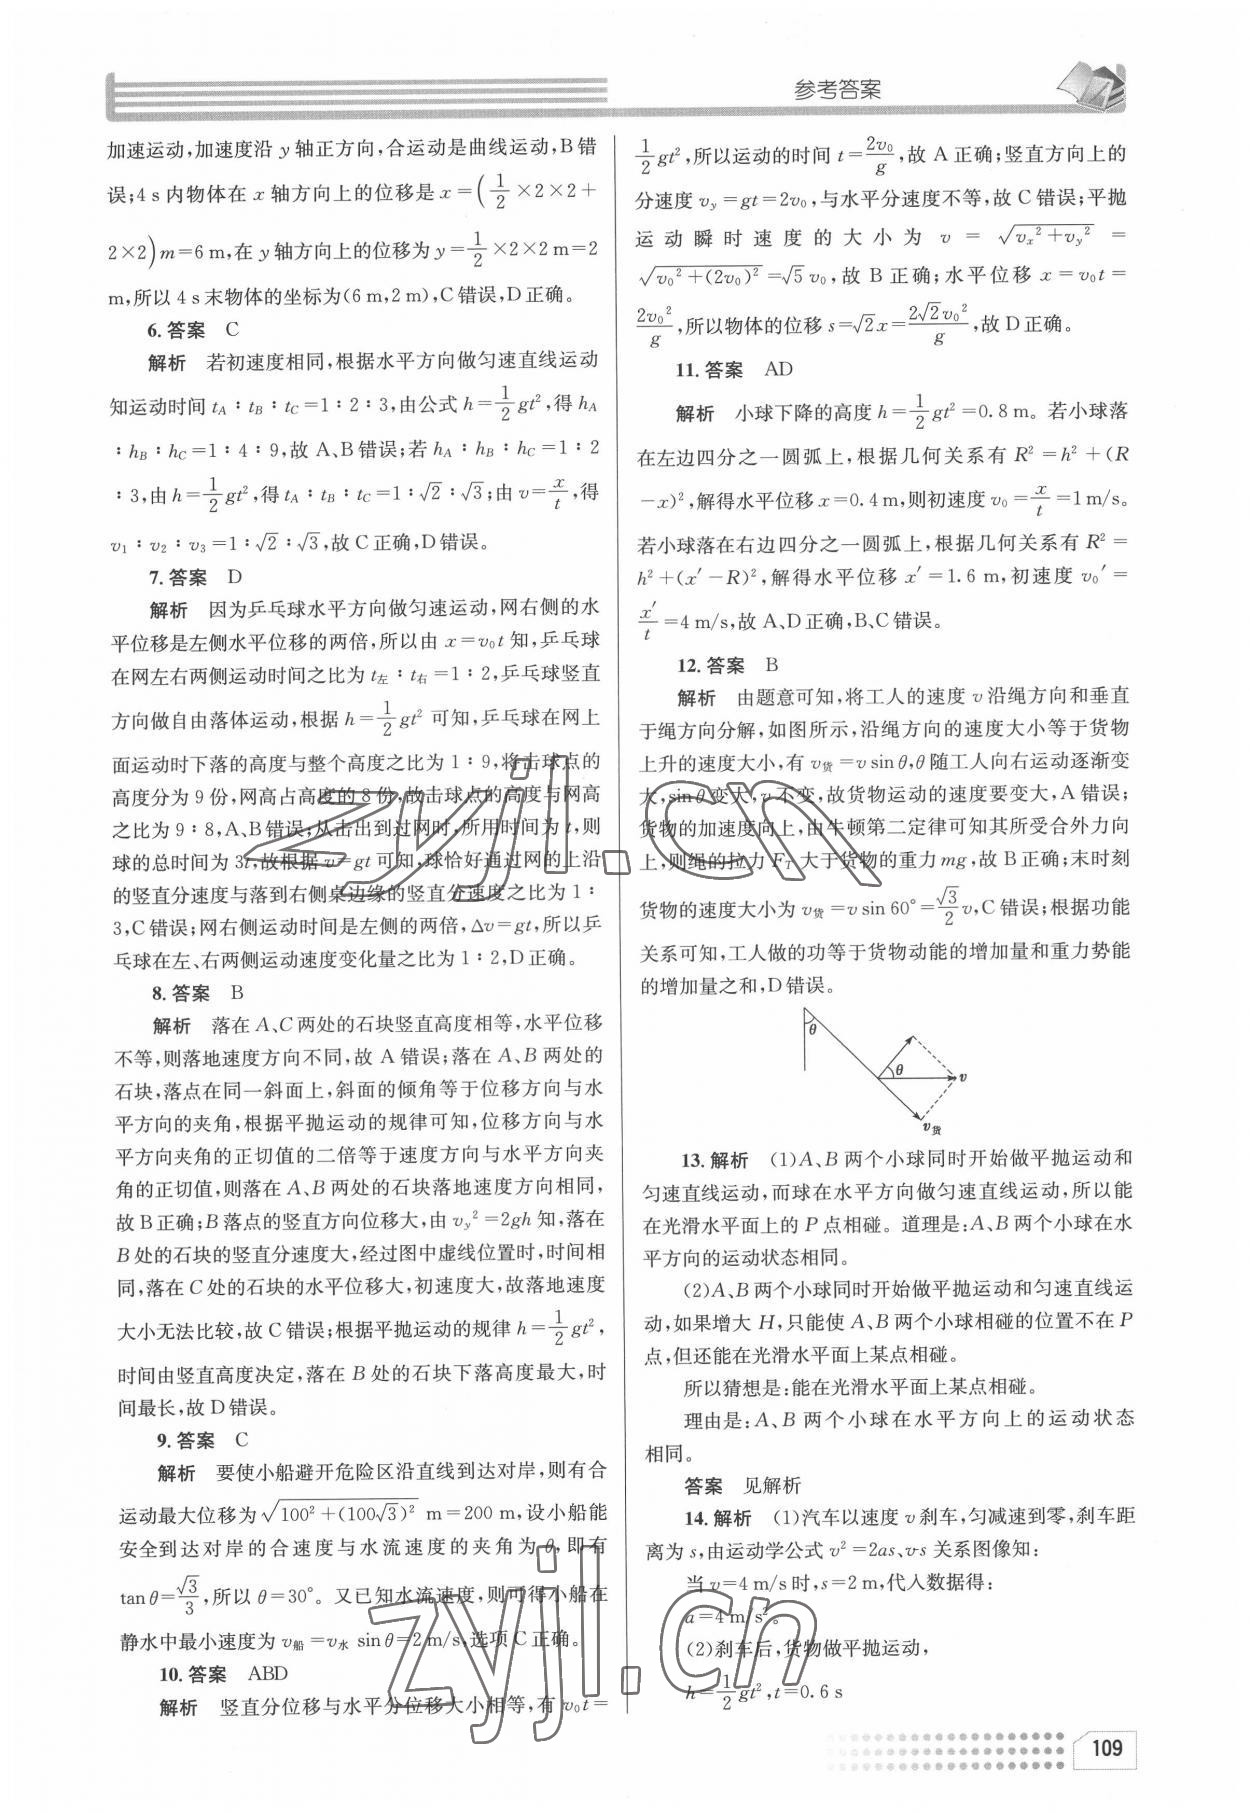 参考答案
加速运动,加速度沿 y 轴正方向,合运动是曲线运动,B 错
误;4 s 内物体在 x 轴方向上的位移是 x=(1/2×2×2+
2×2)m=6 m,在 y 轴方向上的位移为 y=1/2×2×2 m=2
m,所以 4 s 末物体的坐标为(6 m,2 m),C 错误,D 正确。
6. 答案 C
解析 若初速度相同,根据水平方向做匀速直线运动
知运动时间 tA∶tB∶tC=1∶2∶3,由公式 h=1/2gt²,得 hA
∶hB∶hC=1∶4∶9,故 A、B 错误;若 hA∶hB∶hC=1∶2
∶3,由 h=1/2gt²,得 tA∶tB∶tC=1∶√2∶√3;由 v=x/t,得
v₁∶v₂∶v₃=1∶√2∶√3,故 C 正确,D 错误。
7. 答案 D
解析 因为乒乓球水平方向做匀速运动,网右侧的水
平位移是左侧水平位移的两倍,所以由 x=v₀t 知,乒乓球
在网左右两侧运动时间之比为 t左∶t右=1∶2,乒乓球竖直
方向做自由落体运动,根据 h=1/2gt² 可知,乒乓球在网上
面运动时下落的高度与整个高度之比为 1∶9,将击球点的
高度分为 9 份,网高占高度的 8 份,故击球点的高度与网高
之比为 9∶8,A、B 错误;从击出到过网时,所用时间为 t,则
球的总时间为 3t,故根据 v=gt 可知,球恰好通过网的上沿
的竖直分速度与落到右侧桌边缘的竖直分速度之比为 1∶
3,C 错误;网右侧运动时间是左侧的两倍,Δv=gt,所以乒
乓球在左、右两侧运动速度变化量之比为 1∶2,D 正确。
8. 答案 B
解析 落在 A、C 两处的石块竖直高度相等,水平位移
不等,则落地速度方向不同,故 A 错误;落在 A、B 两处的
石块,落点在同一斜面上,斜面的倾角等于位移方向与水
平方向的夹角,根据平抛运动的规律可知,位移方向与水
平方向夹角的正切值的二倍等于速度方向与水平方向夹
角的正切值,则落在 A、B 两处的石块落地速度方向相同,
故 B 正确;B 落点的竖直方向位移大,由 vy²=2gh 知,落在
B 处的石块的竖直分速度大,经过图中虚线位置时,时间相
同,落在 C 处的石块的水平位移大,初速度大,故落地速度
大小无法比较,故 C 错误;根据平抛运动的规律 h=1/2gt²,
时间由竖直高度决定,落在 B 处的石块下落高度最大,时
间最长,故 D 错误。
9. 答案 C
解析 要使小船避开危险区沿直线到达对岸,则有合
运动最大位移为√(100²+(100√3)²) m=200 m,设小船能
安全到达对岸的合速度与水流速度的夹角为 θ,即有
tan θ=√3/3,所以 θ=30°。又已知水流速度,则可得小船在
静水中最小速度为 v船=v水 sin θ=2 m/s,选项 C 正确。
10. 答案 ABD
解析 竖直分位移与水平分位移大小相等,有 v₀t=
1/2gt²,所以运动的时间 t=2v₀/g,故 A 正确;竖直方向上的
分速度 vy=gt=2v₀,与水平分速度不等,故 C 错误;平抛
运动瞬时速度的大小为 v=√(vx²+vy²)=
√(v₀²+(2v₀)²)=√5v₀,故 B 正确;水平位移 x=v₀t=
2v₀²/g,所以物体的位移 s=√2x=2√2v₀²/g,故 D 正确。
11. 答案 AD
解析 小球下降的高度 h=1/2gt²=0.8 m。若小球落
在左边四分之一圆弧上,根据几何关系有 R²=h²+(R
-x)²,解得水平位移 x=0.4 m,则初速度 v₀=x/t=1 m/s。
若小球落在右边四分之一圆弧上,根据几何关系有 R²=
h²+(x′-R)²,解得水平位移 x′=1.6 m,初速度 v₀′=
x′/t=4 m/s,故 A、D 正确,B、C 错误。
12. 答案 B
解析 由题意可知,将工人的速度 v 沿绳方向和垂直
于绳方向分解,如图所示,沿绳方向的速度大小等于货物
上升的速度大小,有 v货=v sin θ,θ 随工人向右运动逐渐变
大,sin θ 变大,v 不变,故货物运动的速度要变大,A 错误;
货物的加速度向上,由牛顿第二定律可知其所受合外力向
上,则绳的拉力 FT 大于货物的重力 mg,故 B 正确;末时刻
货物的速度大小为 v货=v sin 60°=√3/2 v,C 错误;根据功能
关系可知,工人做的功等于货物动能的增加量和重力势能
的增加量之和,D 错误。
θ
θ
v
v货
13. 解析 (1)A、B 两个小球同时开始做平抛运动和
匀速直线运动,而球在水平方向做匀速直线运动,所以能
在光滑水平面上的 P 点相碰。道理是:A、B 两个小球在水
平方向的运动状态相同。
(2)A、B 两个小球同时开始做平抛运动和匀速直线运
动,如果增大 H,只能使 A、B 两个小球相碰的位置不在 P
点,但还能在光滑水平面上某点相碰。
所以猜想是:能在光滑水平面上某点相碰。
理由是:A、B 两个小球在水平方向上的运动状态
相同。
答案 见解析
14. 解析 (1)汽车以速度 v 刹车,匀减速到零,刹车距
离为 s,由运动学公式 v²=2as、v-s 关系图像知:
当 v=4 m/s 时,s=2 m,代入数据得:
a=4 m/s²。
(2)刹车后,货物做平抛运动,
h=1/2gt²,t=0.6 s
zyjl.cn
zyjl.cn
109